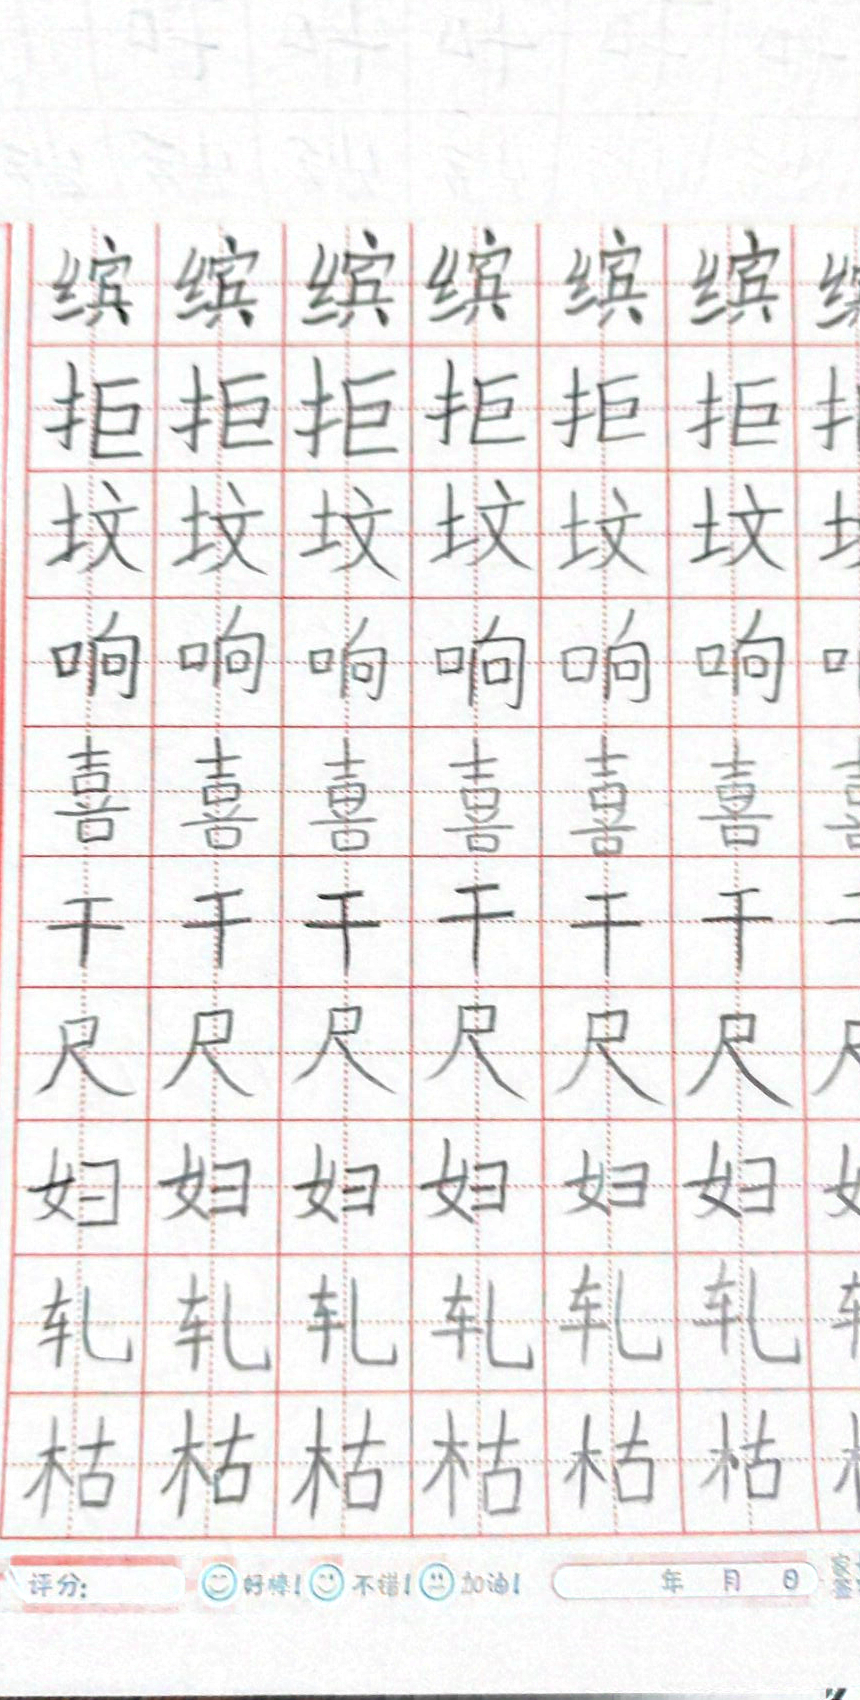 缤缤缤缤缤缤缤
拒拒拒拒拒拒
坟坟坟坟坟坟
响响响响响响
喜喜喜喜喜喜
干干干干干干
尺尺尺尺尺尺
妇妇妇妇妇妇
轧轧轧轧轧轧
枯枯枯枯枯枯
评分: 好棒! 不错! 加油! 年 月 日